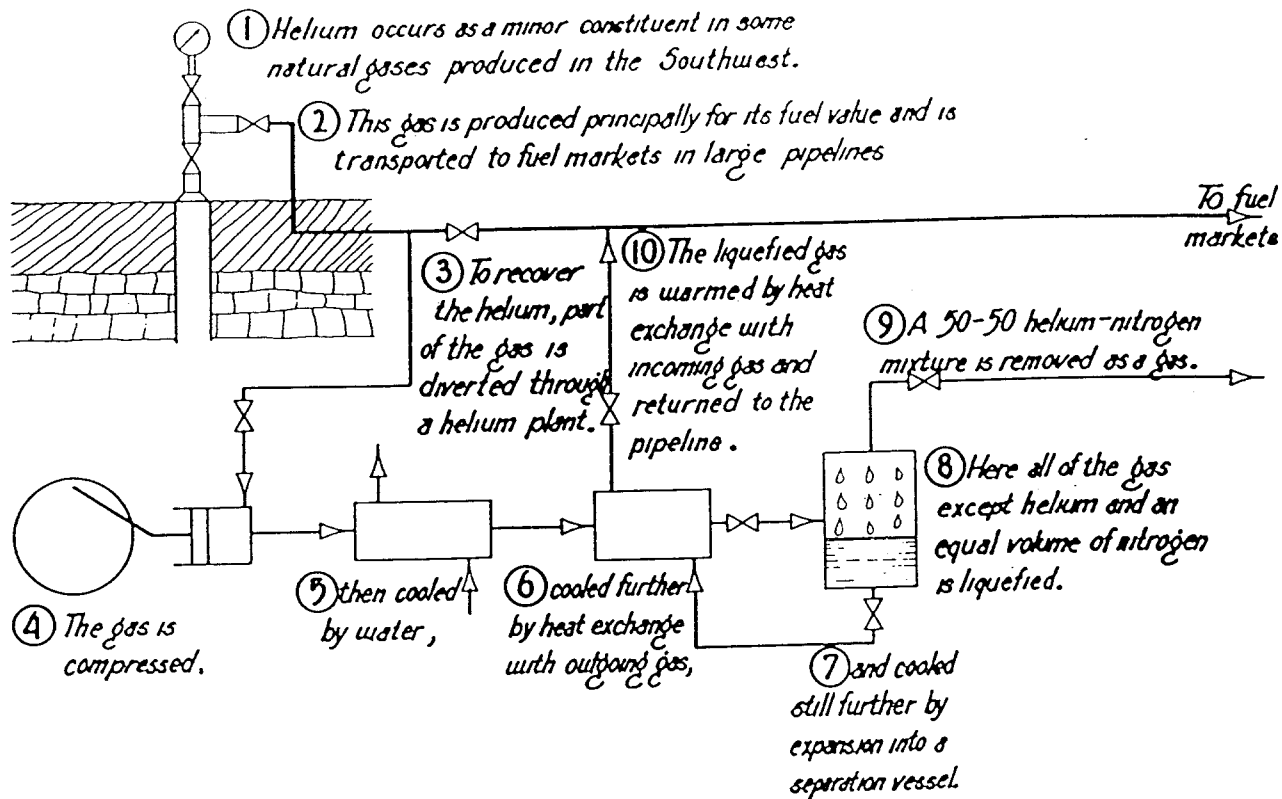 ① Helium occurs as a minor constituent in some
natural gases produced in the Southwest.
② This gas is produced principally for its fuel value and is
transported to fuel markets in large pipelines
To fuel
markets
③ To recover
the helium, part
of the gas is
diverted through
a helium plant.
④ The gas is
compressed.
⑤ then cooled
by water,
⑥ cooled further
by heat exchange
with outgoing gas,
⑦ and cooled
still further by
expansion into a
separation vessel.
⑧ Here all of the gas
except helium and an
equal volume of nitrogen
is liquefied.
⑨ A 50-50 helium-nitrogen
mixture is removed as a gas.
⑩ The liquefied gas
is warmed by heat
exchange with
incoming gas and
returned to the
pipeline.